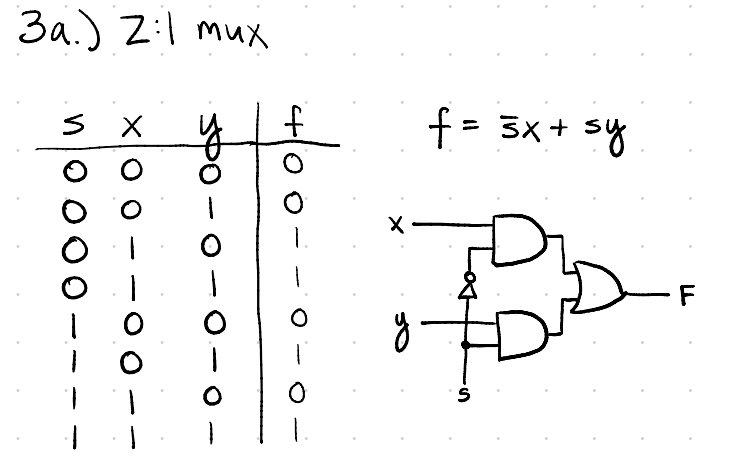 3a.) 2:1 mux
s x y f
0 0 0 0
0 0 1 0
0 1 0 1
0 1 1 1
1 0 0 0
1 0 1 1
1 1 0 0
1 1 1 1
f = s̅x + sy
x
y
s
F